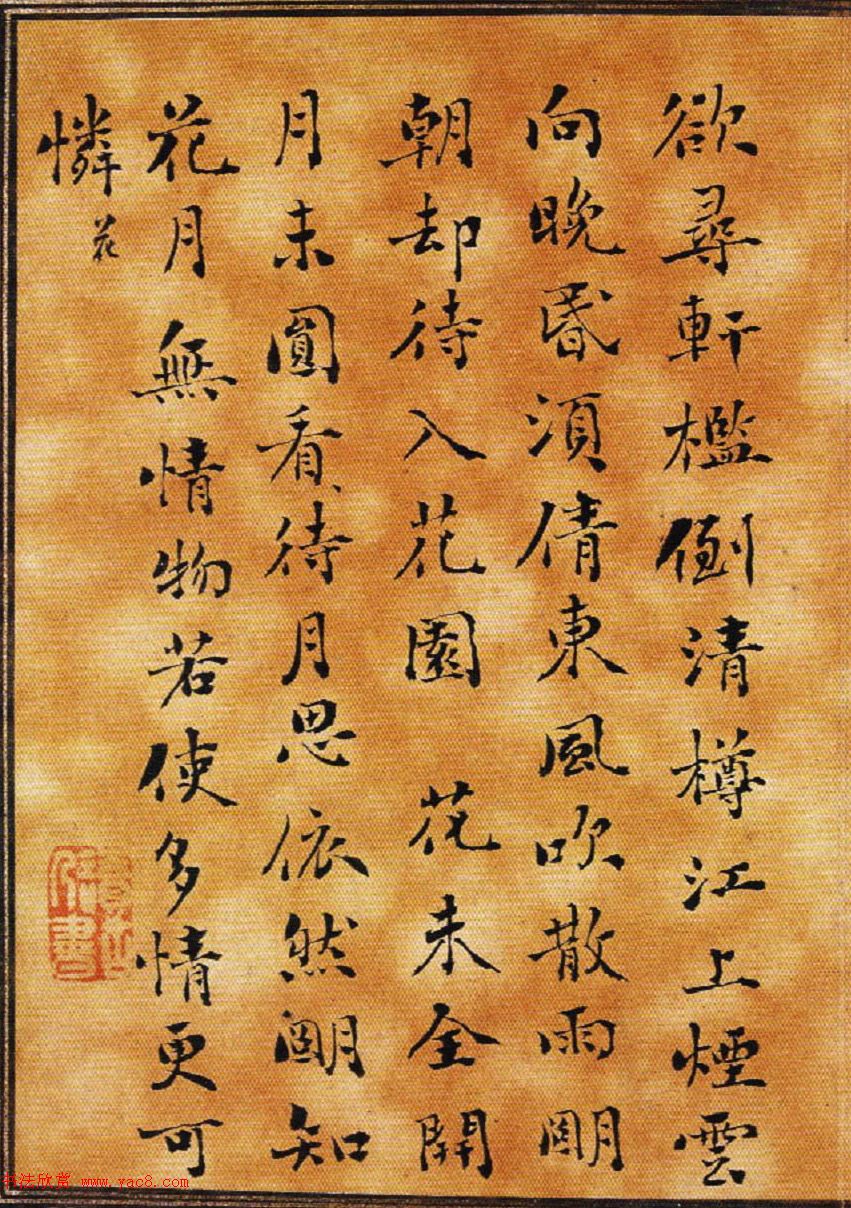 欲尋軒檻倒清樽江上煙雲
向晚昬須倩東風吹散雨朙
朝却待入花園 花未全開
月未圓看花待月思依然朙知
花月無情物若使多情更可
憐
书法欣赏 www.yac8.com